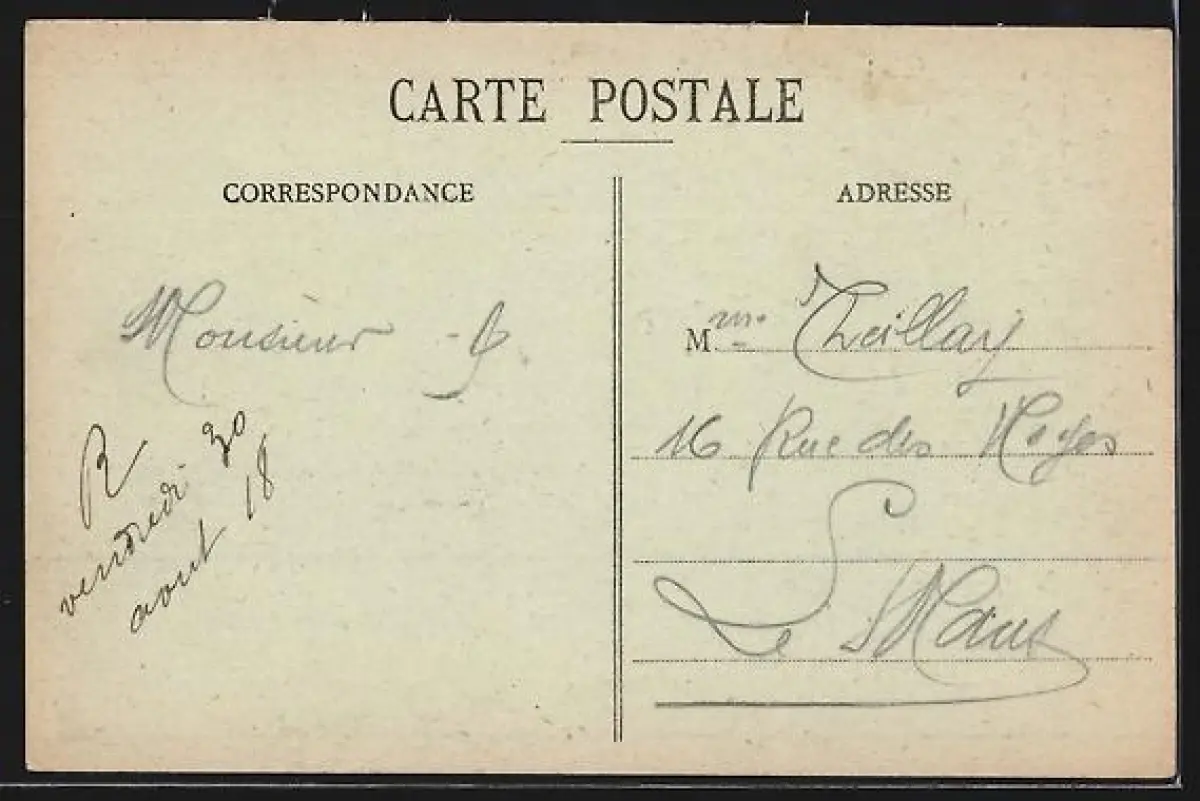 CARTE POSTALE
CORRESPONDANCE
Monsieur
R
vendredi 30
aout 18
ADRESSE
Mme
16 Rue des Hayes
Le Mans